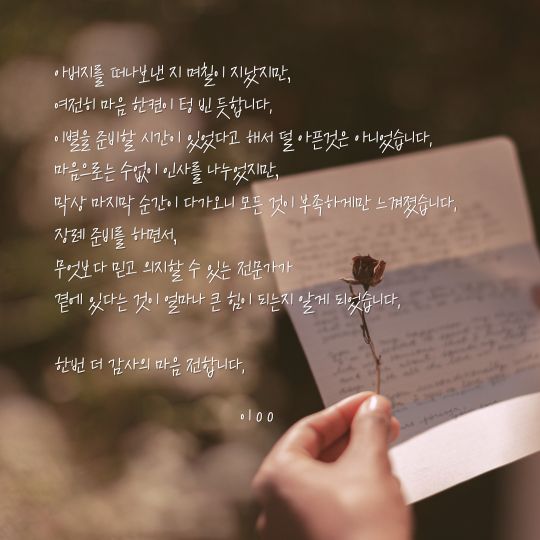 아버지를 떠나보낸 지 며칠이 지났지만,
여전히 마음 한켠이 텅 빈 듯합니다.
이별을 준비할 시간이 있었다고 해서 덜 아픈것은 아니었습니다.
마음으로는 수없이 인사를 나누었지만,
막상 마지막 순간이 다가오니 모든 것이 부족하게만 느껴졌습니다.
장례 준비를 하면서,
무엇보다 믿고 의지할 수 있는 전문가가
곁에 있다는 것이 얼마나 큰 힘이 되는지 알게 되었습니다.
한번 더 감사의 마음 전합니다.
이 O O